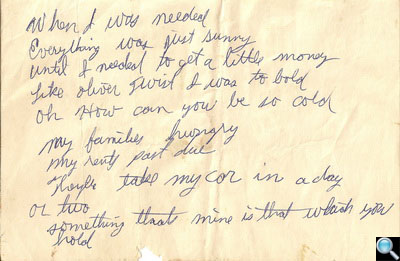 When I was needed
Everything was just sunny
until I needed to get a little money
Like oliver Twist I was to bold
oh How can you be so cold
my families hungry
my rents past due
They'll take my car in a day
or two
something thats mine is that which you
hold